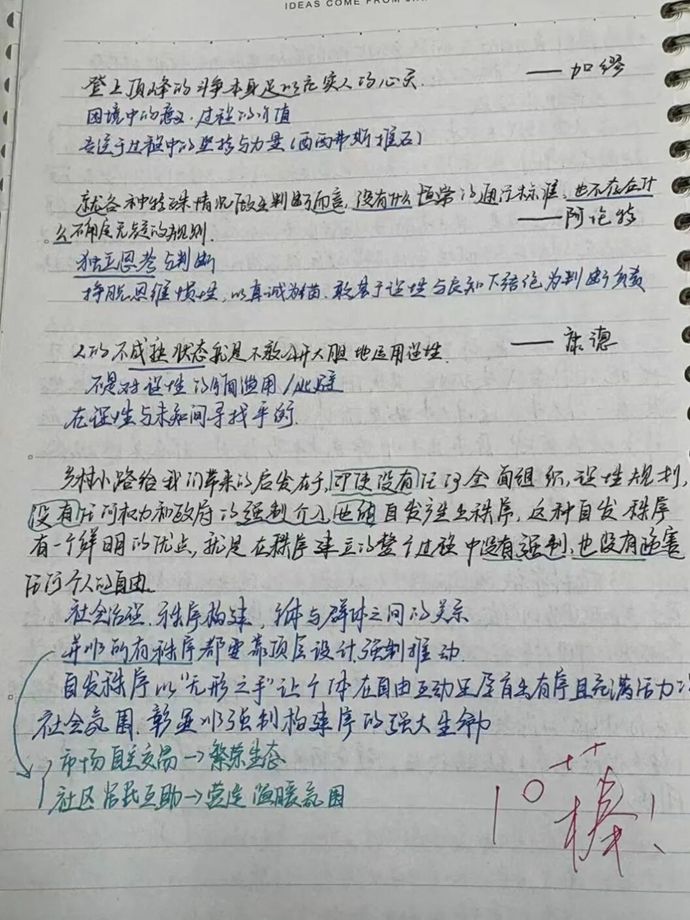 IDEAS COME FROM
登上顶峰的斗争本身足以充实人的心灵. ——加缪
困境中的意义.过程的价值
专注于过程中的坚持与力量(西西弗斯推石)
就各种特殊情况的判断而言,没有什么恒常的通行标准,也不存在什
么不确定无疑的规则. ——阿伦特
独立思考与判断
挣脱思维惯性,以真诚为锚.敢基于理性与良知下结论为判断负责
人的不成熟状态就是不敢公开大胆地运用理性. ——康德
不是对理性的滥用/
在理性与未知间寻找平衡.
乡村小路给我们带来的启发在于,即使没有任何全面组织,理性规划,
没有任何权力和政府的强制介入,也能自发产生秩序,这种自发秩序
有一个鲜明的优点,就是在秩序建立的整个过程中没有强制,也没有损害
任何个人的自由.
社会治理.秩序构建,个体与群体之间的关系
并非所有秩序都要靠顶层设计强制推动.
自发秩序以"无形之手"让个体在自由互动里孕育出有序且充满活力的
社会氛围.彰显非强制构建秩序的强大生命力
市场自主交易→繁荣生态
社区居民互助→营造温暖氛围
10++
棒!